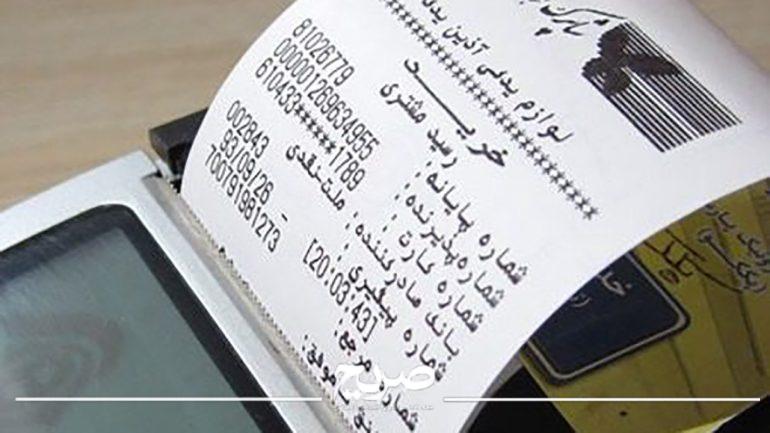 شرکت پ
لوازم یدکی آذین یدک
********************
خریـــد
رسید مشتری
شماره پایانه: 81026779
شماره پذیرنده: 000001269634955
شماره کارت: 610433******1789
بانک صادرکننده: ملت-نقدی
شماره پیگیری: 002843
[20:03:43] _ 93/09/26
شماره مرجع: 700791981273
ناموفق:
صریح